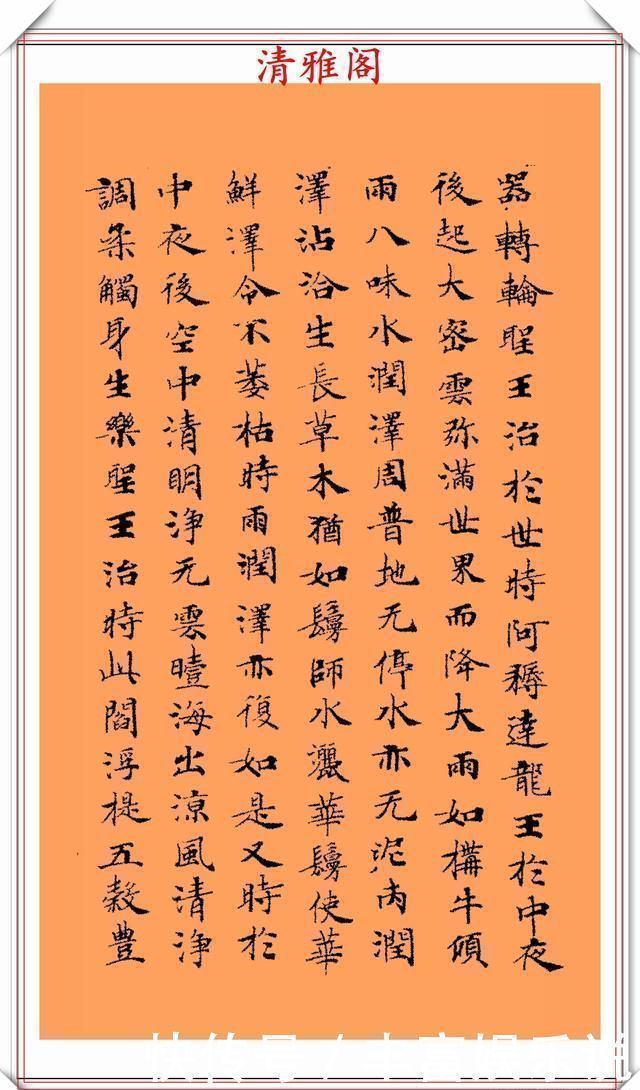 清雅阁
器轉輪聖王治於世時阿耨達龍王於中夜
後起大密雲弥滿世界而降大雨如構牛頃
雨八味水潤澤周普地无停水亦无泥洿潤
澤沾洽生長草木猶如鬘師水灑華鬘使華
鮮澤令不萎枯時雨潤澤亦復如是又時於
中夜後空中清明浄无雲曀海出涼風清浄
調柔觸身生樂聖王治時此閻浮提五穀豊